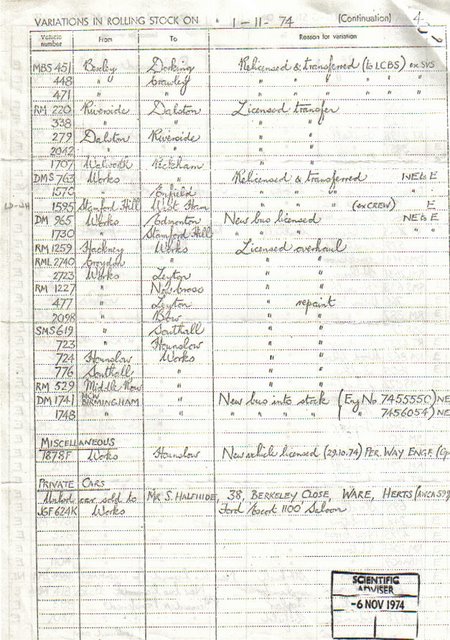 VARIATIONS IN ROLLING STOCK ON 1-11-74 (Continuation)
Vehicle number From To Reason for variation
MBS 451 Bexley Dorking Relicensed & transferred (to LCBS) ex SVS
448 " Crawley " " " " "
471 " " " " " " "
RM 220 Riverside Dalston Licensed transfer
338 " " " "
279 Dalston Riverside " "
2042 " " " "
1707 Walworth Peckham " "
DMS 763 Works " Relicensed & transferred NE to E
1570 " Enfield " "
1595 Stamford Hill West Ham " " (ex CREW) E
DM 965 Works Edmonton New bus licensed NE to E
1730 " Stamford Hill " " " "
RM 1259 Hackney Works Licensed overhaul
RML 2740 Croydon " " "
2723 Works Leyton " "
RM 1227 " New Cross " "
477 " Leyton " repaint
2098 " Bow " "
SMS 619 " Southall " "
1723 " Hounslow " "
724 Hounslow Works " "
776 Southall " " "
RM 529 Middle Row " " "
DM 1741 MCW BIRMINGHAM " New bus into stock (Eng No 745555C) NE
1748 " " " " " " ( " 7456054) NE
MISCELLANEOUS
1878F Works Hounslow New vehicle licensed (29.10.74) PER. WAY ENGR.
PRIVATE CARS
car sold to MR S. HALFHIDE, 38, BERKELEY CLOSE, WARE, HERTS
JGF 624K Works Ford Escort 1100 Saloon
SCIENTIFIC
ADVISER
-6 NOV 1974